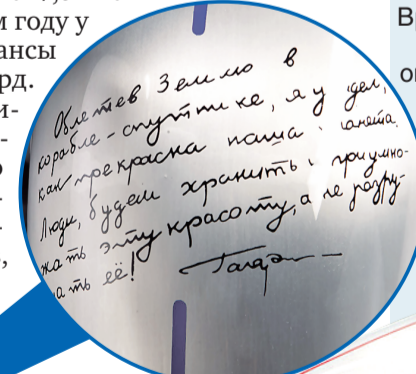 м году у
ансы
рд.
и-
-
Облетев Землю в
корабле-спутнике, я у дел,
как прекрасна наша ланета.
Люди, будем хранить и приумно-
жать эту красоту, а не разру-
ать её! Гагарин
В
о